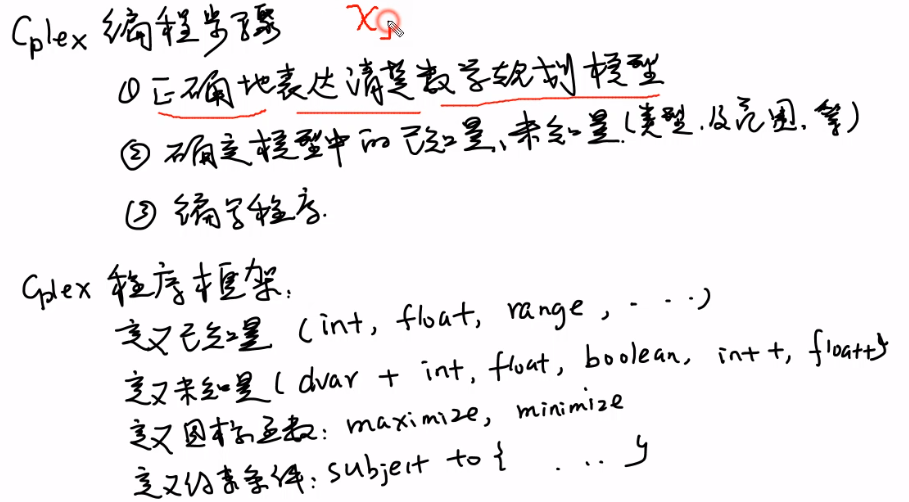 Cplex 编程步骤
① 正确地表达清楚数学规划模型
② 确定模型中的已知量、未知量(类型、及范围、等)
③ 编写程序.
Cplex 程序框架:
定义已知量 (int, float, range, ...)
定义未知量 (dvar + int, float, boolean, int+, float+)
定义目标函数: maximize, minimize
定义约束条件: subject to { ... }